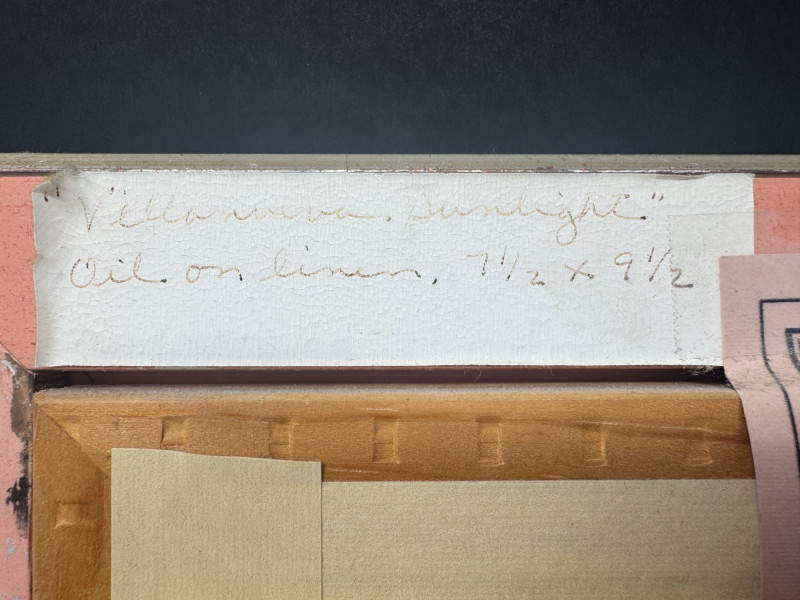 "Villanueva Sunlight"
Oil on linen, 7 1/2 x 9 1/2